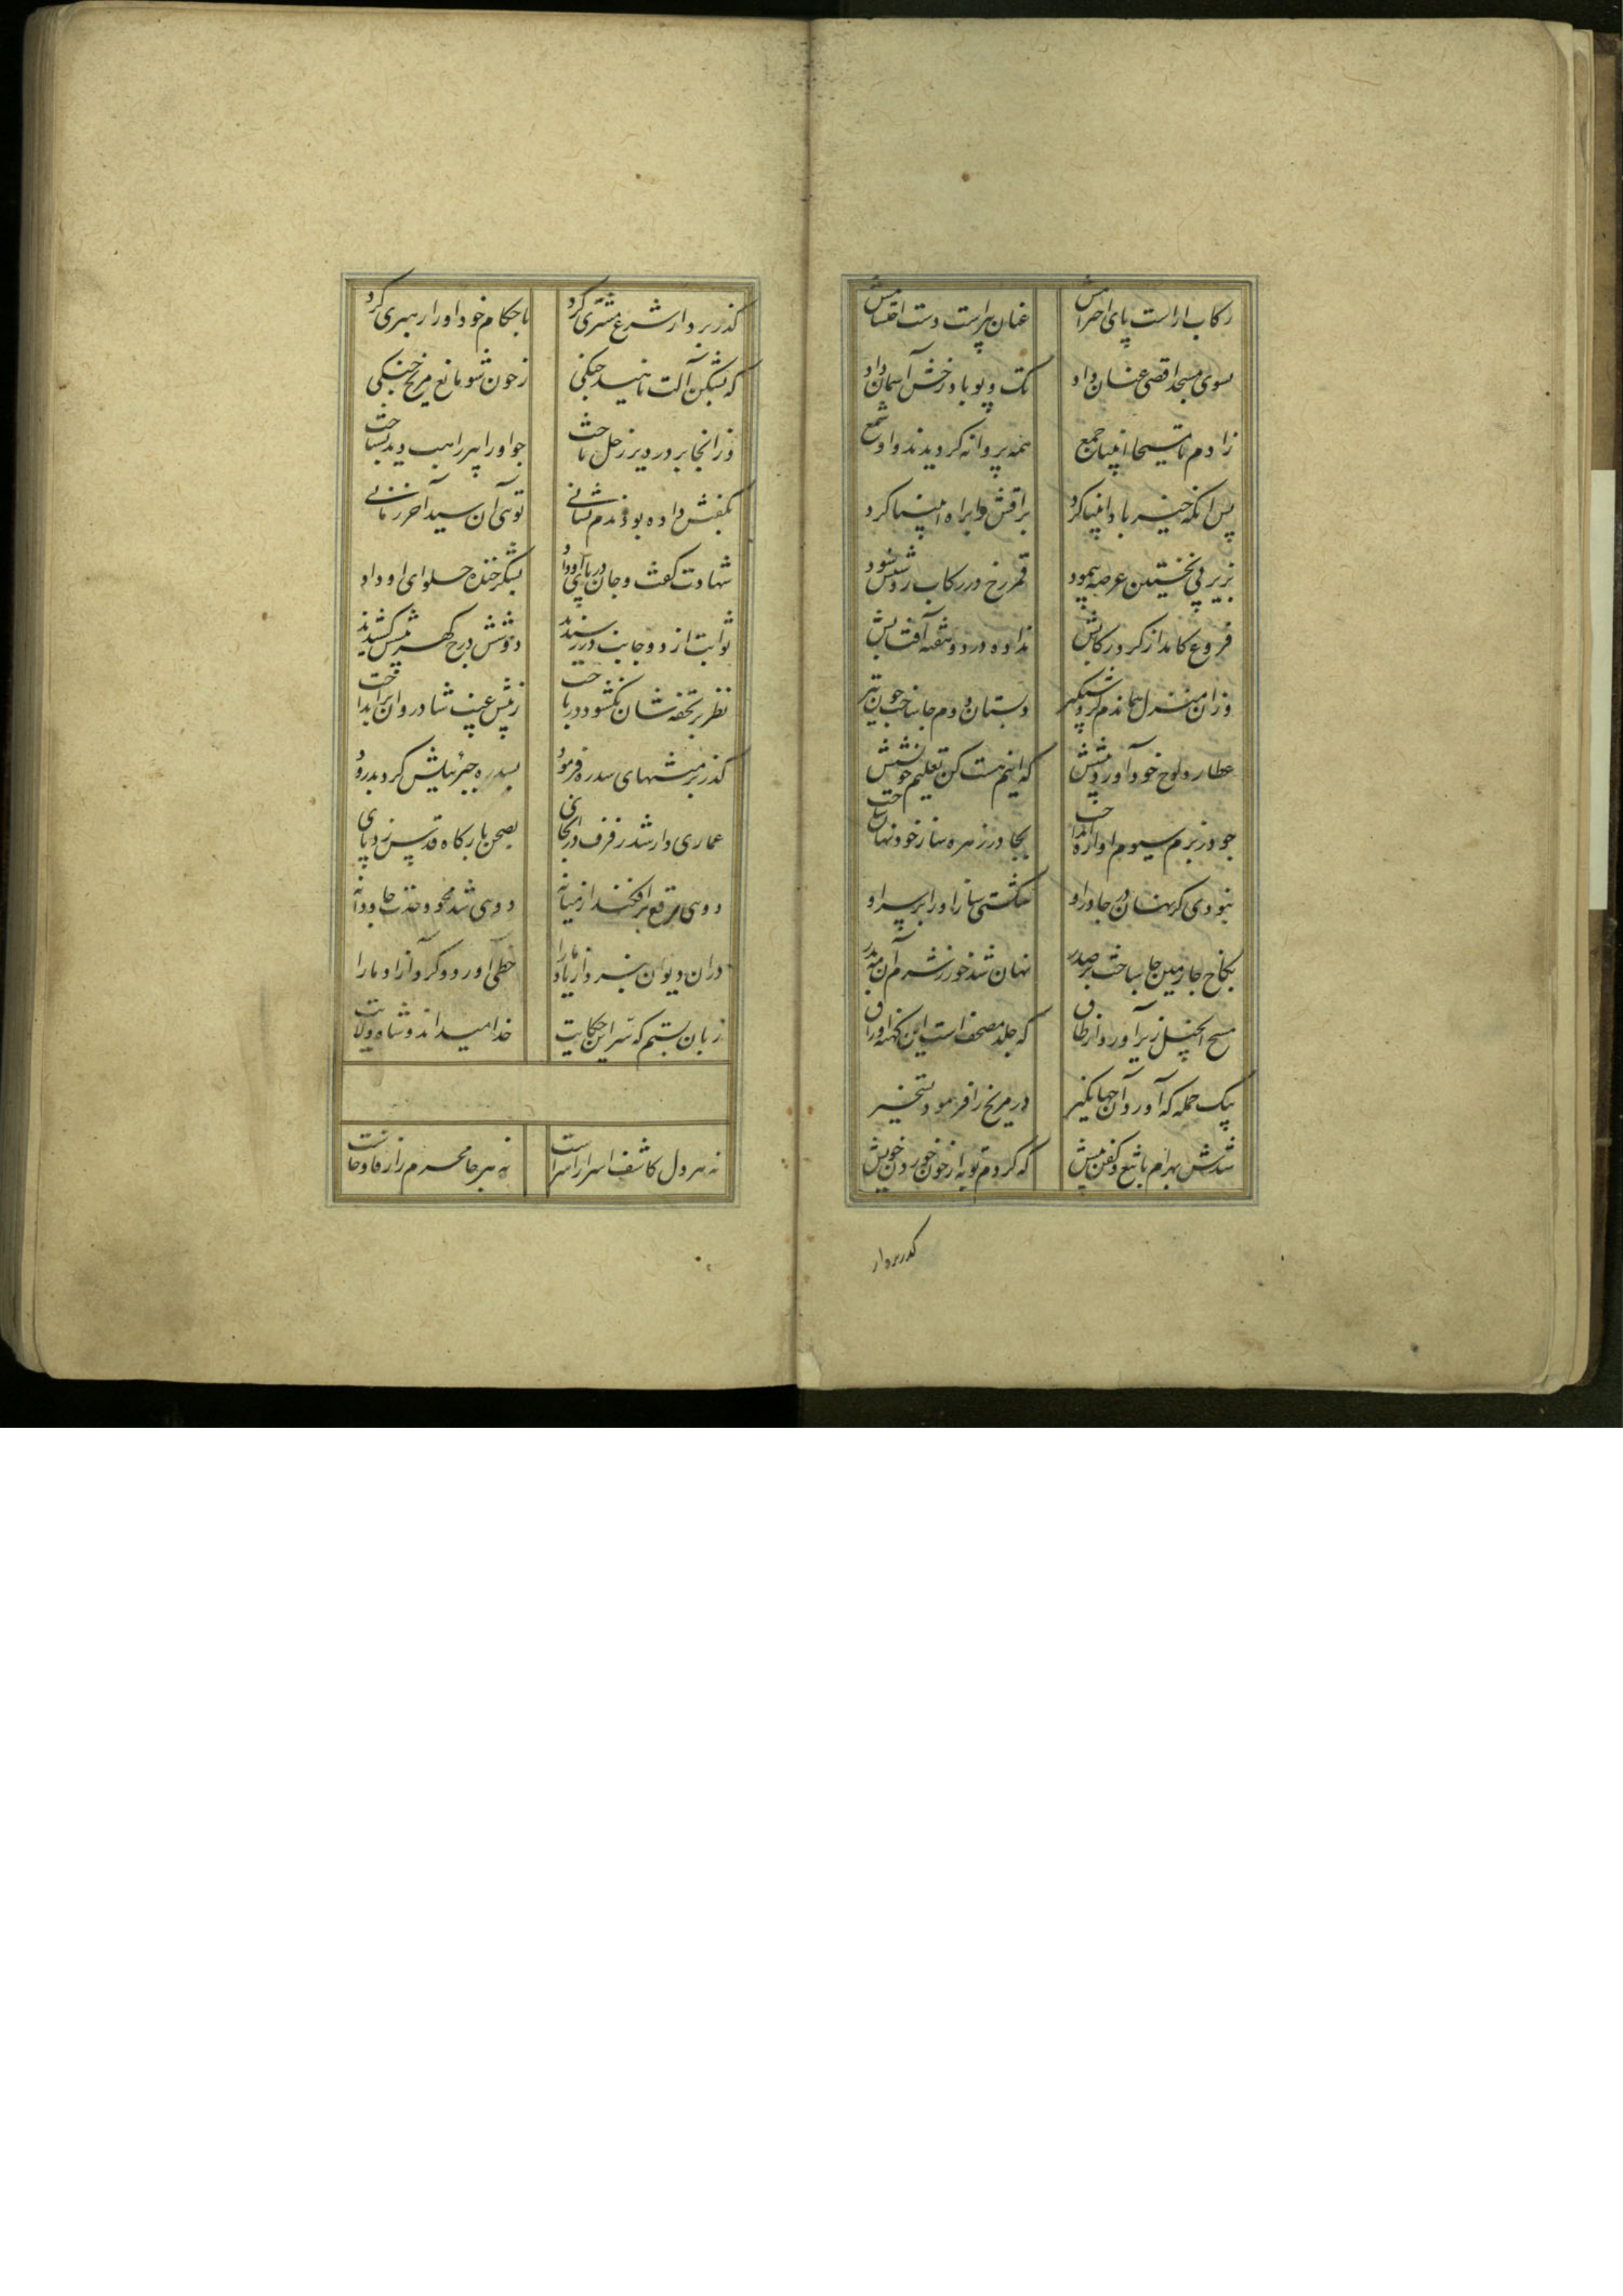 رکاب اراست پای احرامش عنان پیراست دست احتشامش
بسوی مسجد اقصی عنان داد تک و پو با درخش آسمان داد
ز ادم تا مسیحا انبیا جمع همه پروانه کردیدند و او شمع
پس انکه خیر باد انبیا کرد براقش را براه انبیا کرد
بزیر پی نخستین عرصه پیمود قمر رخ در رکاب روشنش سود
فروغ کامد از کرد رکابش نداده در دو هفته آفتابش
وزان منزل هماندم کرد شبکیر دبستان دوم جا ساخت چون تیر
عطارد لوح خود آورد پیشش که اینم هست کن تعلیم خویشش
چو در بزم سیوم اوازه انداخت بچادر زهره ساز خود نهان ساخت
نبودی کر نهان در چادر او شکستی ساز او را بر سر او
بکاخ چارمین جا ساخت بر صدر نهان شد خور ز شرم آن مه بدر
مسیح انجیل زیر آورد از طاق که جلد مصحف است این کهنه اوراق
بیک حمله که آورد آن جهانکیر در مریخ را فرمود تسخیر
شدش بهرام با تیغ و کفن پیش که کردم توبه از خون خوردن خویش
کذر بر دار
کذر بر دار شرع مشتری کرد باحکام خود او را رهبری کرد
که بشکن آلت ناهید چنکی ز خون شو مانع مریخ جنکی
وز انجا بر در دیر زحل تاخت چو او را پیر راهب دید بشناخت
بکفش داده بودندم نشانی توئی آن سید آخر زمانی
شهادت گفت و جان در پای او داد بشکر خنده حلوای او داد
ثوابت از دو جانب در رسیدند دو شش درج کهر پیشش کشیدند
نظر بر تحفه شان نکشود و در تاخت ز پیش غیب شادروان برانداخت
کذر بر منتهای سدره فرمود بسدره جبرئیلش کرد بدرود
عماری دار شد رفرف در انجای بصحن بارکاه قدس زد پای
دوئی برقع برافکند از میانه دوئی شد محو وحدت جاودانه
در ان دیوان نبرد از یاد ما را خطی آورد و کرد آزاد ما را
زبان بستم که سر این حکایت خدا میداند و شاه ولایت
نه هر دل کاشف اسرار اسراست نه هر جا محرم راز فاوحاست